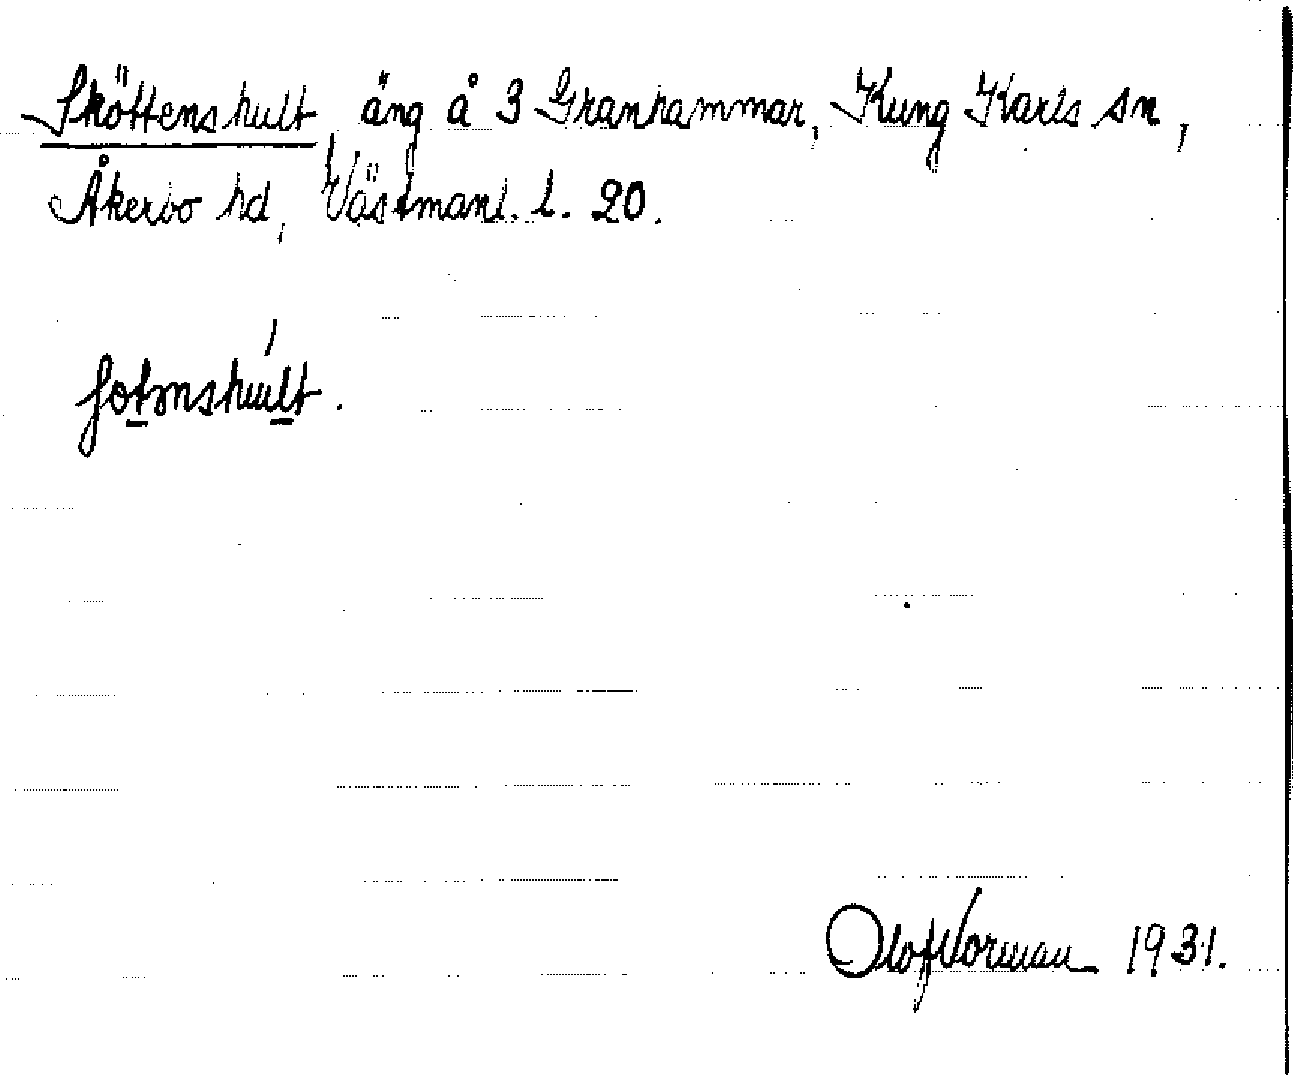 Sköttenshult, äng å 3 Granhammar, Kung Karls sn,
Åkerbo hd, Västmanl. l. 20.
Olof Norman 1931.